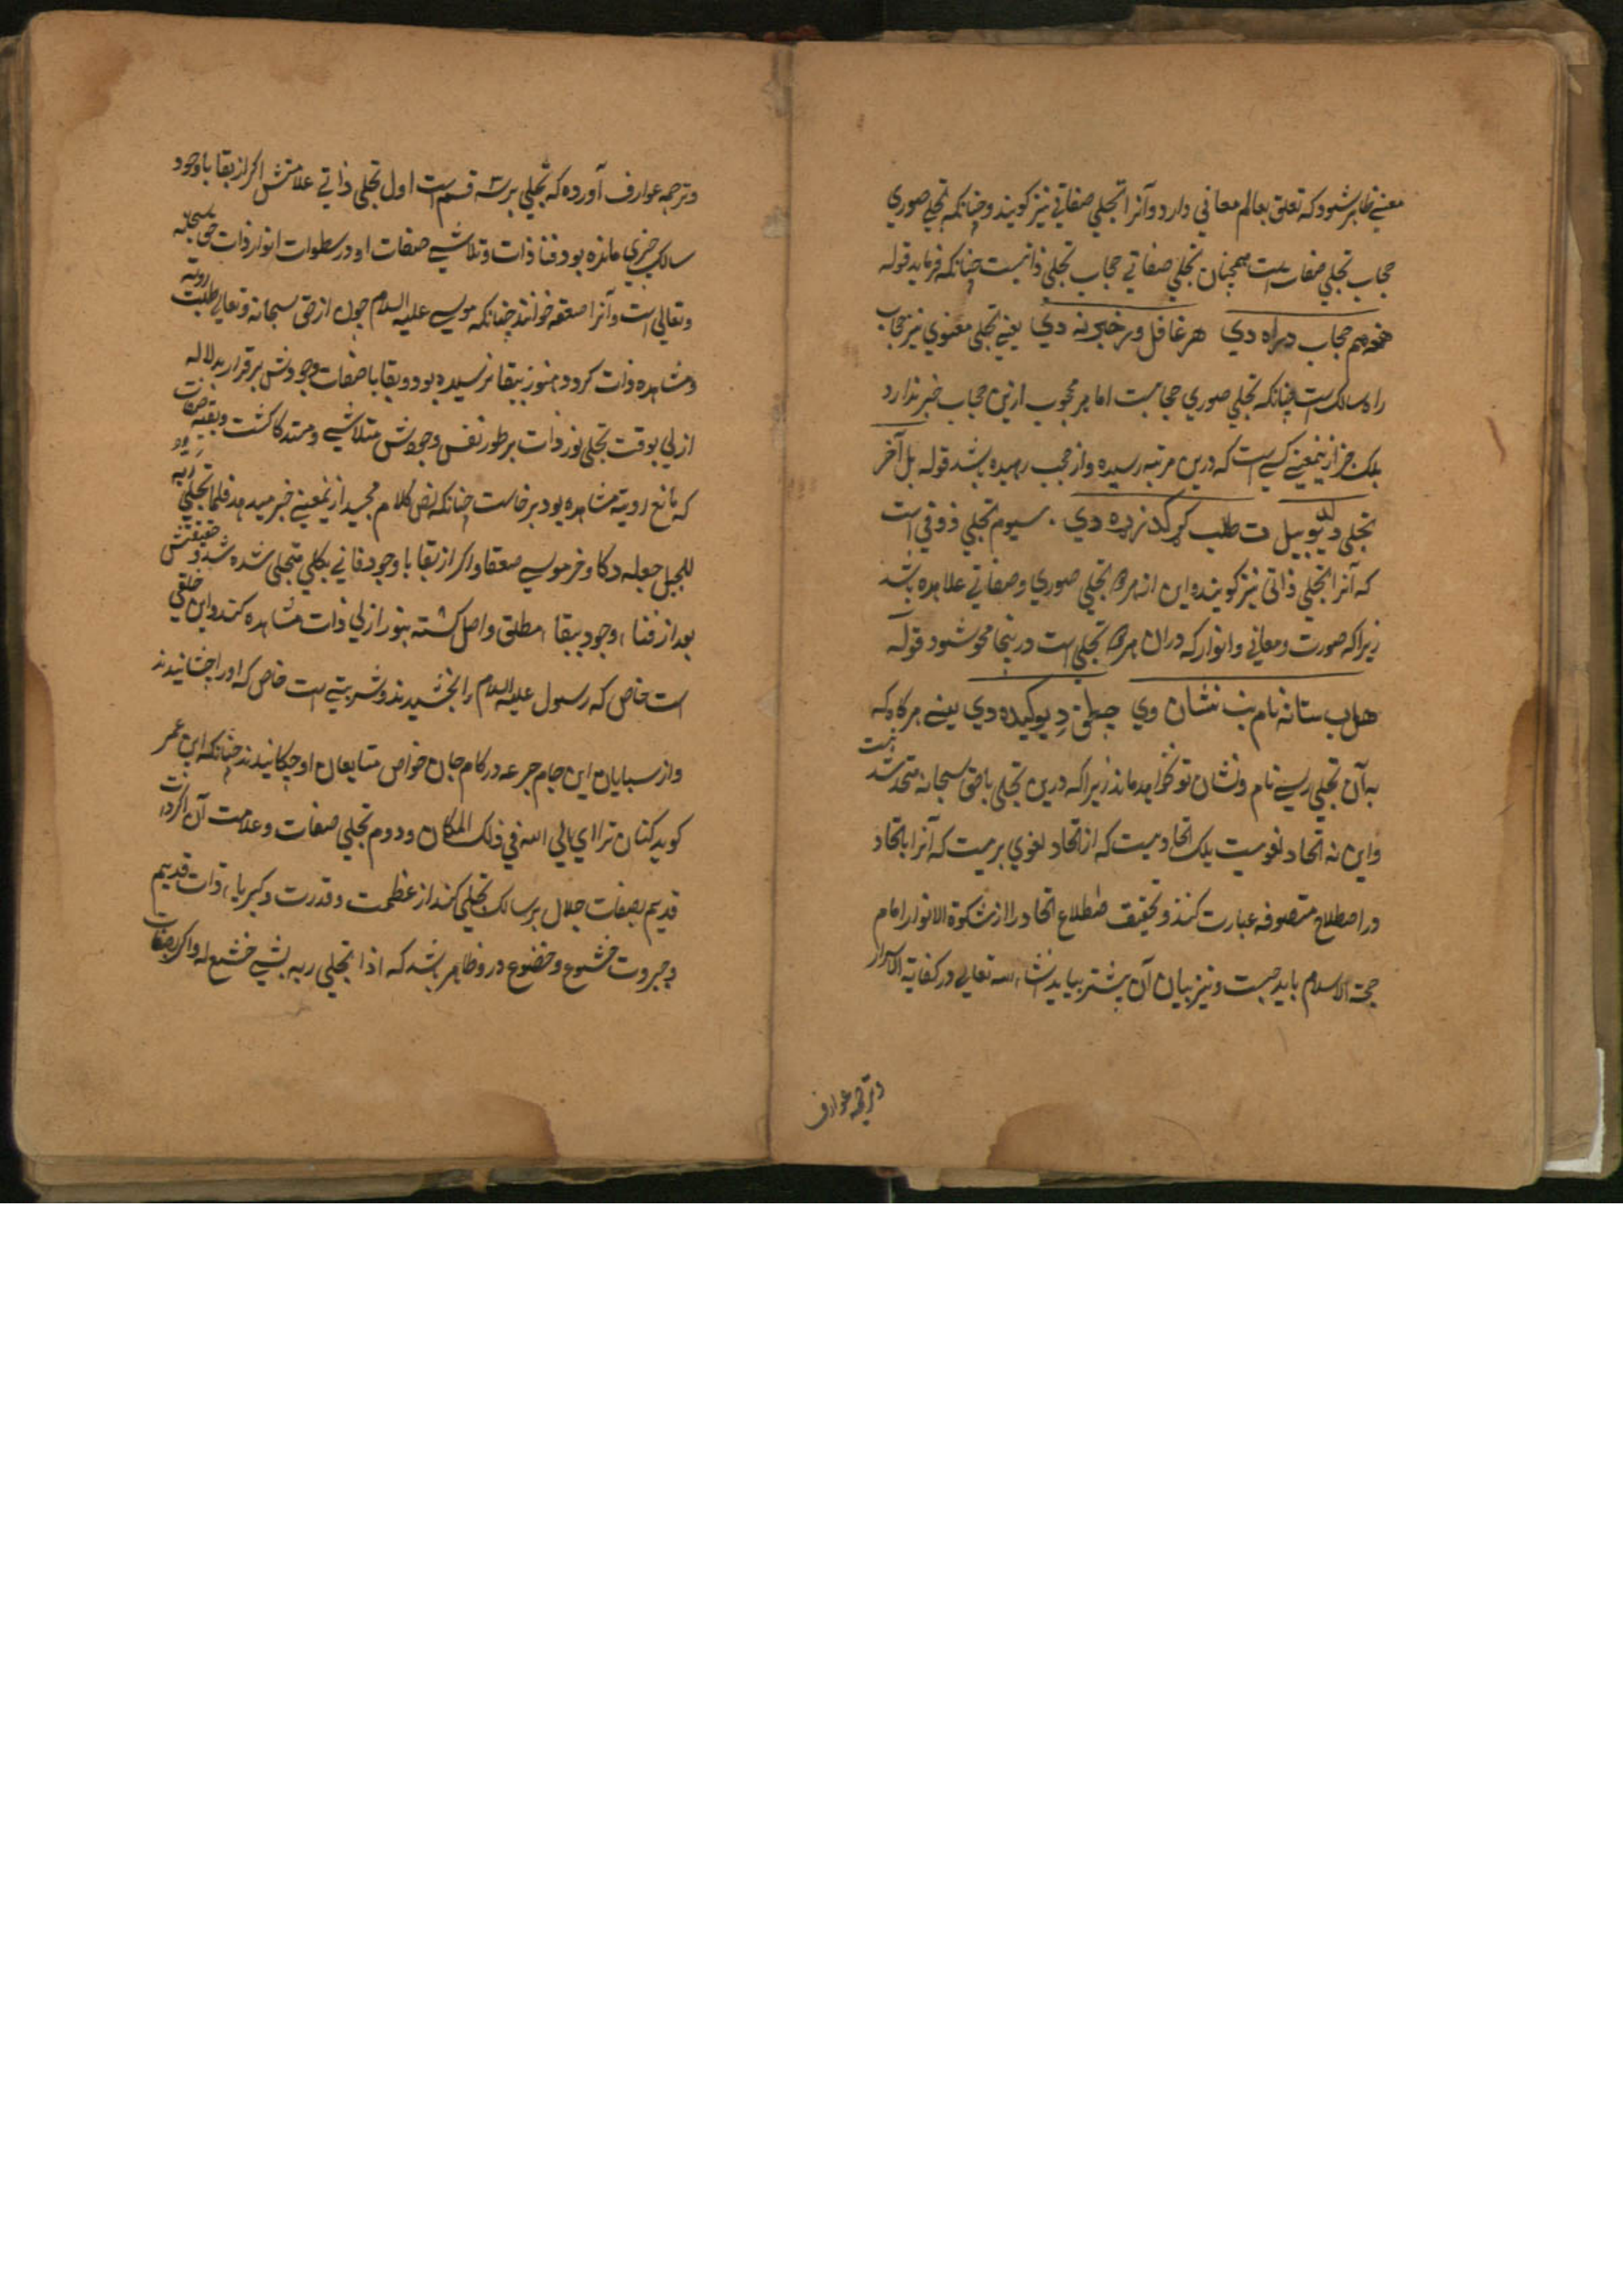 معنے ظاهر شود که تعلق بعالم معاني دارد و آنرا تجلي صفاتي نیز کویند و چنانکه تجلے صوري
حجاب تجلي صفات است همچنان تجلي صفاتي حجاب تجلي ذاتیست چنانکه فرماید قوله
هغه هم حجاب دراه دي هر غافل ور خبر نه دي یعنے تجلي معنوي نیز حجاب
راه سالک است چنانکه تجلي صوري حجابست اما هر محجوب ازین حجاب خبر ندارد
بلک خبر ازینمعنے کسے راست که درین مرتبه رسیده و از حجب رهیده باشد قوله بل آخر
تجلي د یوبیل ت طلب کړه کدنږده دي . سیوم تجلي ذوقي است
که آنرا تجلي ذاتي نیز کویند و این از هر دو تجلي صوري و صفاتي علاهده باشد
زیرا که صورت و معاني و انوار که در ان هر دو تجلي است درینجا محو شود قوله
هلب ستا نه نام نه نشان وي تجلي د یوکیده دي یعنے هرکاه که
به آن تجلي رسے نام و نشان تو نخواهد ماند زیرا که درین تجلي باحق سبحانه متحد باشد نیست
و این نه اتحاد لغویست بلک اتحادیست که از اتحاد لغوي بریست که آنرا باتحاد
در اصطلاح متصوفه عبارت کنند و تحقیق اصطلاع اتحاد را از مشکوة الانوار امام
حجة الاسلام باید جست و نیز بیان آن بیشتر بیاید انشاء الله تعالے در کفایة الاسرار
و ترجمه عوارف
و ترجمه عوارف آورده که تجلي بر سه قسم است اول تجلي ذاتي علامتش اکر از بقایا وجود
سالک چیزي مانده بود فنا ذات و تلاشے صفات او در سطوات انوار ذات حق سبحانه
و تعالي است و آنرا صعقه خوانند چنانکه موسے علیه السلام چون از حق سبحانه و تعالے طلب رویة
و مشاهده ذات کرد و هنوز ببقا نرسیده بود و بقایا صفات وجودش برقرار بدلاله
ازلي بوقت تجلي نور ذات بر طور نفس وجودش متلاشے و مندکا کشت و بقیه صفات
که مانع رویة مشاهده بود برخاست چنانکه نص کلام مجید ازینمعنے خبر میدهد فلما تجلي ربه
للجبل جعله دکا و خر موسے صعقا و اکر از بقایا وجود فاني بکلي متجلی شده شد و حقیقتش
بعد از فناء وجود ببقاء مطلق واصل کشته بنور ازلي ذات مشاهده کند و این خلعتي
است خاص که رسول علیه السلام را بخشیدند و شربتے است خاص که او را چشانیدند
و از بقایای این جام جرعه در کام جان خواص متابعان او چکانیدند چنانکه ابن عمر
کوید کنان تراای یالي الله في ذلک المکان و دوم تجلي صفات و علامت آن اکر ذات
قدیم بصفات جلال بر سالک تجلي کند از عظمت و قدرت و کبریاء ذات قدیم
و جبروت خشوع و خضوع درو ظاهر باشد که اذا تجلي ربه بشے خشع له و اکر بصفات